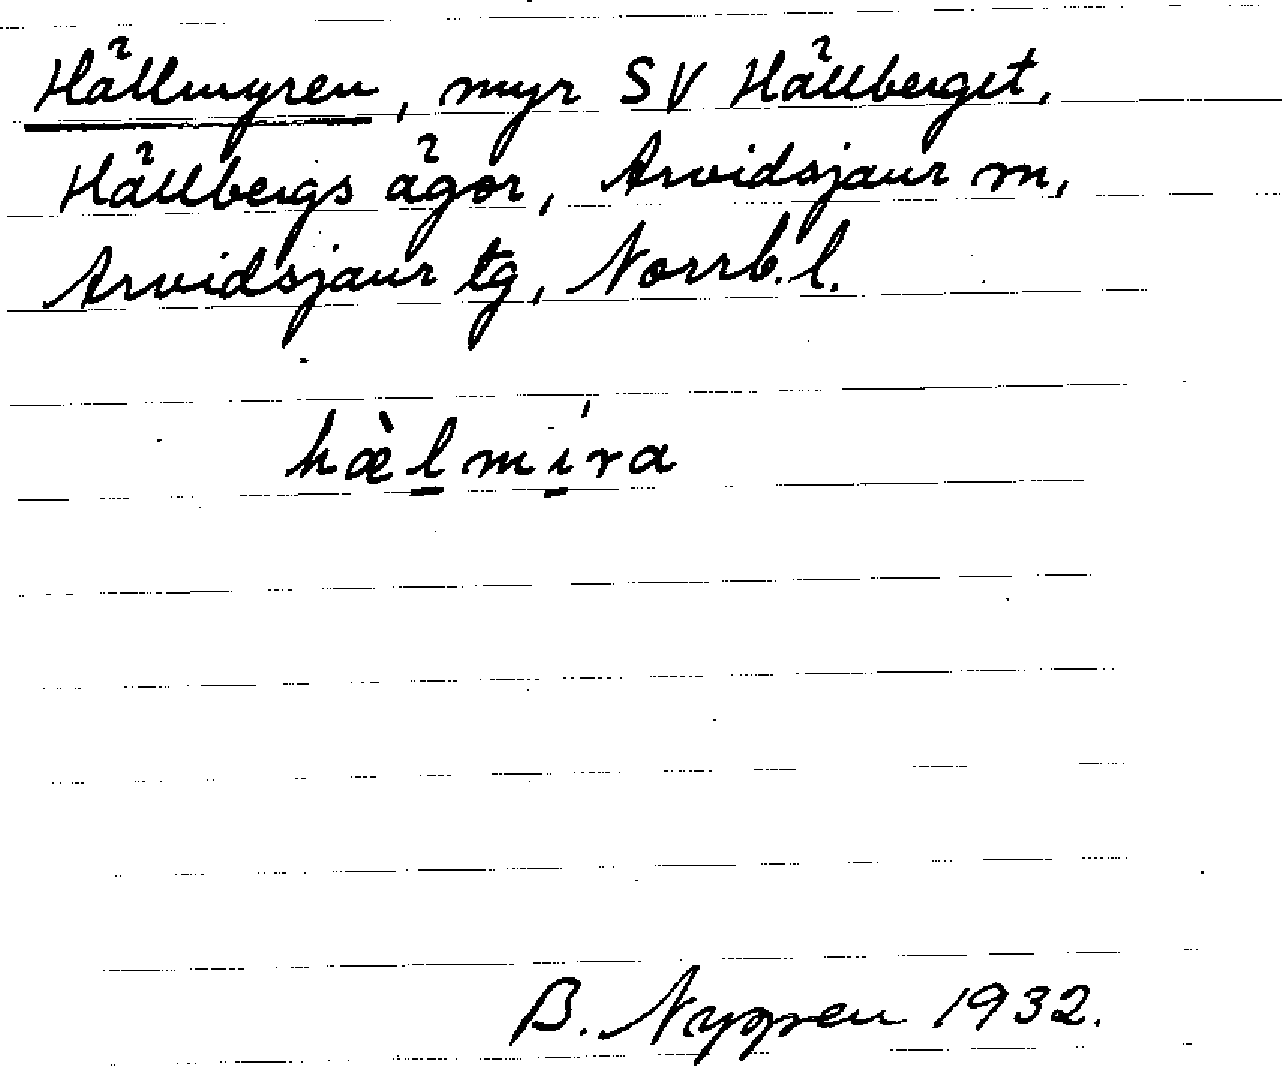 Hällmyren, myr SV Hällberget,
Hällbergs ägor, Arvidsjaur m,
Arvidsjaur tg, Norrb.l.
hæ̀l̠mi̠ŕa
B. Nygren 1932.